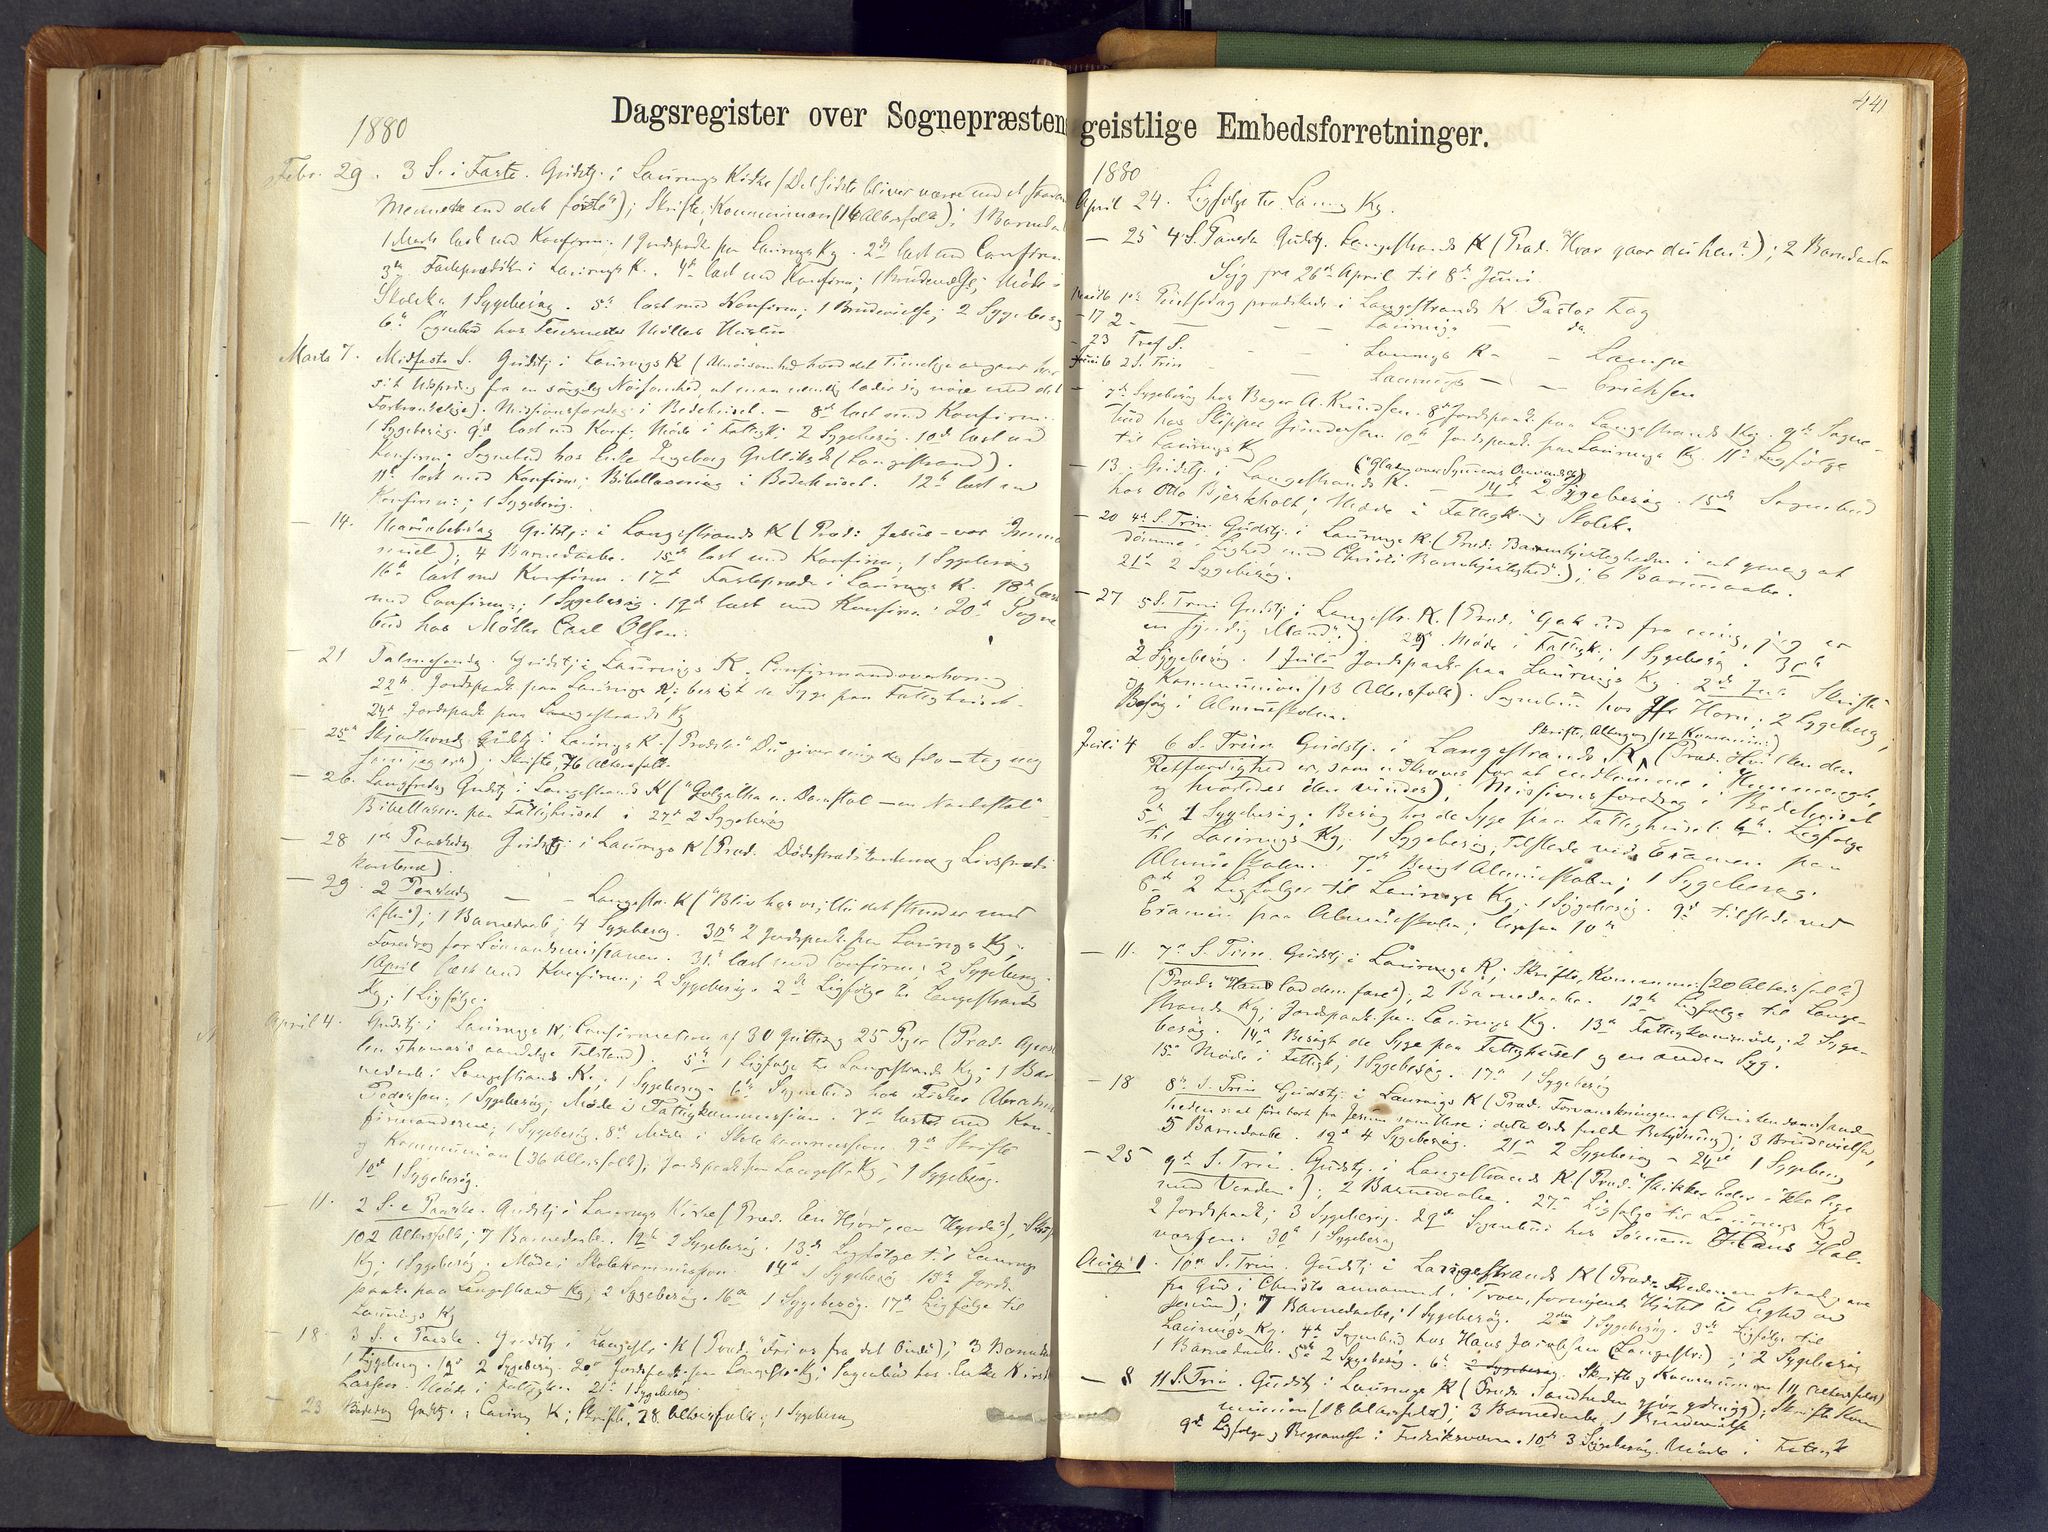 Dagsregister over Sognepræstens geistlige Embedsforretninger.
1880
Febr. 29. 3 S. i Faste. Gudstj. i Laurvigs Kirke (Det Sidste bliver værre med et saadant
Menneske end det første"); Skrifte, Kommunion (16 Altersfolk); 1 Barnedaab
1 Marts læst med Konfirm. 1 Jordspaak. paa Laurvigs Kg. 2den læst med Confirm.
3die Fasteprædiken i Laurvigs K. 4de læst med Konfirm; 1 Brudevielse; Møde i
Skolek. 1 Sygebesøg. 5te læst med Konfirm; 1 Brudevielse; 2 Sygebesøg
6te Sognebud hos
Marts 7. Midfaste S. Gudstj. i Laurvigs K (
sit Udspring fra en sørgelig Nøisomhed, at man nemlig lader sig nøie med det
Forkrænkelige). Missionsforedrag i Bedehuset. – 8de læst med Konfirm.
1 Sygebesøg. 9de læst med Konf; Møde i Fattigk; 2 Sygebesøg. 10de læst med
Konfirm. Sognebud hos Enke Ingeborg Gulliksd. (Langestrand).
11te læst med Konfirm; Bibellæsning i Bedehuset. 12te læst med
Konfirm; 1 Sygebesøg.
– 14. Mariæbebud. Gudstj. i Langestrands K (Præd: Jesus – vor Imma-
nuel); 4 Barnedaabe. 15de læst med Konfirm; 1 Sygebesøg
16de læst med Konfirm. 17de Fasteprædik. i Laurvigs K. 18de læst
med Confirm; 1 Sygebesøg. 19de læst med Konfirm. 20de Sogne-
bud hos Møller Carl Olsen.
– 21 Palmesøndag. Gudstj. i Laurvigs K. Confirmandoverhøring
22de Jordspaak. paa Laurvigs K; besøgt de Syge paa Fattighuset.
24de Jordspaak paa Langestrands Kg
– 25de Skjærthorsdg Gudstj. i Laurvigs K. (Prædik: "Du giver mig
). Skrifte, 76 Altersfolk.
– 26. Langfredag Gudstj. i Langestrands K ("Golgatha en Domstol – en Naadestol"
Bibellæsn. paa Fattighuset. 27de 2 Sygebesøg
– 28 1ste Paaskedag Gudstj. i Laurvigs K (Præd.
).
– 29. 2 Paaskedg – – Langestr. K ("Bliv hos os, thi det stunder mod
Aften"); 1 Barnedaab; 4 Sygebesøg. 30te 2 Jordspaak. paa Laurvigs Kg;
Foredrag for Sømandsmissionen. 31te læst med Confirm; 2 Sygebesøg.
1 April læst med Konfirm; 2 Sygebesøg. 2den Ligfølge til Langestrands
Kg; 1 Ligfølge.
April 4. Gudstj. i Laurvigs K; Confirmation af 30 Gutter og 25 Piger (Præd. Apost-
len Thomas's aandelige Tilstand). 5te 1 Ligfølge til Langestrands Kg; 1 Bar-
nedaab i Langestrands K; 1 Sygebesøg. 6te Sognebud hos Fisker Abraham
Pedersen; 1 Sygebesøg; Møde i Fattigkommission. 7de læst med Kon-
firmanderne; 1 Sygebesøg. 8de Møde i Skolekommission. 9de Skrifte
og Kommunion (36 Altersfolk); Jordspaak paa Langestr. Kg; 1 Sygebesøg.
10de 1 Sygebesøg.
– 11. 2 S. e Paaske. Gudstj. i Laurvigs Kirke (Præd. En Hjord, een Hyrde"), Skrift
102 Altersfolk; 7 Barnedaabe. 12te 2 Sygebesøg. 13de Ligfølge til Laurvigs
Kg; 1 Sygebesøg. Møde i Skolekommission. 14de 1 Sygebesøg. 15de Jord-
spaak. paa Langestrand Kg; 2 Sygebesøg. 16de 1 Sygebesøg. 17de Ligfølge til
Laurvigs Kg
– 18. 3 S. e Paaske. Gudstj. i Langestr. K (Præd. "Fri os fra det Onde"); 3 Barnedaabe
1 Sygebesøg. 19de 2 Sygebesøg. 20de Jordspaak. paa Langestr. Kg; Sognebud hos Enke
Larsen. Møde i Fattigk. 21de 1 Sygebesøg
– 23 Bededag Gudstj. i Laurvigs K; Skrifte, 28 Altersfolk; 1 Sygebesøg
441
1880
April 24. Ligfølge til Laurvig Kg.
– 25 4 S. Paaske Gudstj. Langestrands K (Præd. Hvor gaar du hen?); 2 Barnedaabe
Syg fra 26de April til 8de Juni
Mai 16 1ste Pintsedag prædikede i Langestrands K Pastor Fag
– 17 2 – – – Laurvigs – do
– 23 Tref S. – – Laurvigs K – – Lange
Juni 6 2 S. Trin – – Laurvigs – – Erichsen
– 7de Sygebesøg hos Bager A. Knudsen. 8de Jordspaak paa Langestrands Kg. 9de Sogne-
bud hos Skipper Gundersen. 10de Jordspaak. paa Laurvigs Kg. 11te Ligfølge
til Laurvigs Kg
– 13. Gudstj. i Langestrands K. ("Glæden over Synderens Omvendelse) – 14de 2 Sygebesøg. 15de Sognebud
hos Otto Bjerkholt; Møde i Fattigk. og Skolek.
– 20 4de S. Trin. Gudstj. i Laurvigs K. (Præd: Barmhjertigheden i at
dømme i Lighed med Christi Barmhjertighed"); 6 Barnedaabe.
21de 2 Sygebesøg.
– 27 5 S. Trin Gudstj. i Langestr. K. (Præd. "Gak ud fra mig, jeg er
en syndig Mand"). 29de Møde i Fattigk; 1 Sygebesøg. 30te
2 Sygebesøg. 1 Juli Jordspaak. paa Laurvigs Kg. 2den Juli Skrifte
og Kommunion (13 Altersfolk). Sognebud hos Jfr Horn; 2 Sygebesøg;
Besøg i Almueskolen.
Juli 4 6 S. Trin Gudstj. i Langestrands K, Skrifte, Altergang (12 Kommunik) (Præd. Hvilken den
Retfærdighed er, som udkræves for at indkomme i Himmeriget,
og hvorledes den vindes); Missionsforedrag i Bedehuset
5te 1 Sygebesøg. Besøg hos de Syge paa Fattighuset. 6te Ligfølge
til Laurvigs Kg; 1 Sygebesøg; tilstede ved Examen paa
Almueskolen. 7de Besøgt Almueskolen; 1 Sygebesøg.
8de 2 Ligfølger til Laurvigs Kg; 1 Sygebesøg. 9de tilstede ved
Examen paa Almueskolen; ligesaa 10de
– 11. 7de S. Trin. Gudstj. i Laurvigs K; Skrifte, Kommunion (20 Altersfolk)
(Præd: "Han lod dem fare"), 2 Barnedaabe. 12te Ligfølge til Lange-
strands Kg; Jordspaak. paa Laurvigs Kg. 13de Fattigkommission; 2 Syge-
besøg. 14de Besøgt de Syge paa Fattighuset og en anden Syg.
15de Møde i Fattigk; 1 Sygebesøg. 17de 1 Sygebesøg
– 18 8de S. Trin Gudstj. i Laurvigs K (Præd. Forvanskningen af Christendomssand-
heden: at føre bort fra Jesum som Herre i dette Ords fulde Betydning); 3 Brudevielser,
5 Barnedaabe. 19de 4 Sygebesøg. 21de 2 Sygebesøg – 24de 1 Sygebesøg
– 25 9de S. Trin. Gudstj. i Langestrands K (Præd: "Skikker Eder ikke lige
med Verden"); 2 Barnedaabe. 27de Ligfølge til Laurvigs Kg og
2 Jordspaak; 3 Sygebesøg. 29de Sognebud hos Sømand Hans Hal-
vorsen. 30te 1 Sygebesøg
Aug. 1. 10de S. Trin. Gudstj. i Langestrands K (Præd: Freden en Naadegave
fra Gud i Christo annammet i Troen, fornyende Hjertet til Lighed med
Jesum); 7 Barnedaabe; 1 Sygebesøg. 2den 1 Sygebesøg. 3die Ligfølge til
Laurvigs Kg. 4de Sognebud hos Hans Jacobsen (Langestr.); 2 Sygebesøg
1 Barnedaab. 5te 2 Sygebesøg. 6te 2 Sygebesøg. Skrifte og Kommunion (11 Altersfolk)
– 8 11 S. Trin. Gudstj. i Laurvigs K (Præd: Sandheden gjør ydmyg); Skrifte Kom-
munion (18 Altersfolk); 3 Barnedaabe, 1 Brudevielse
9de Ligfølge og Begravelse i Fredriksværn. 10de 3 Sygebesøg. Møde i Fattigk